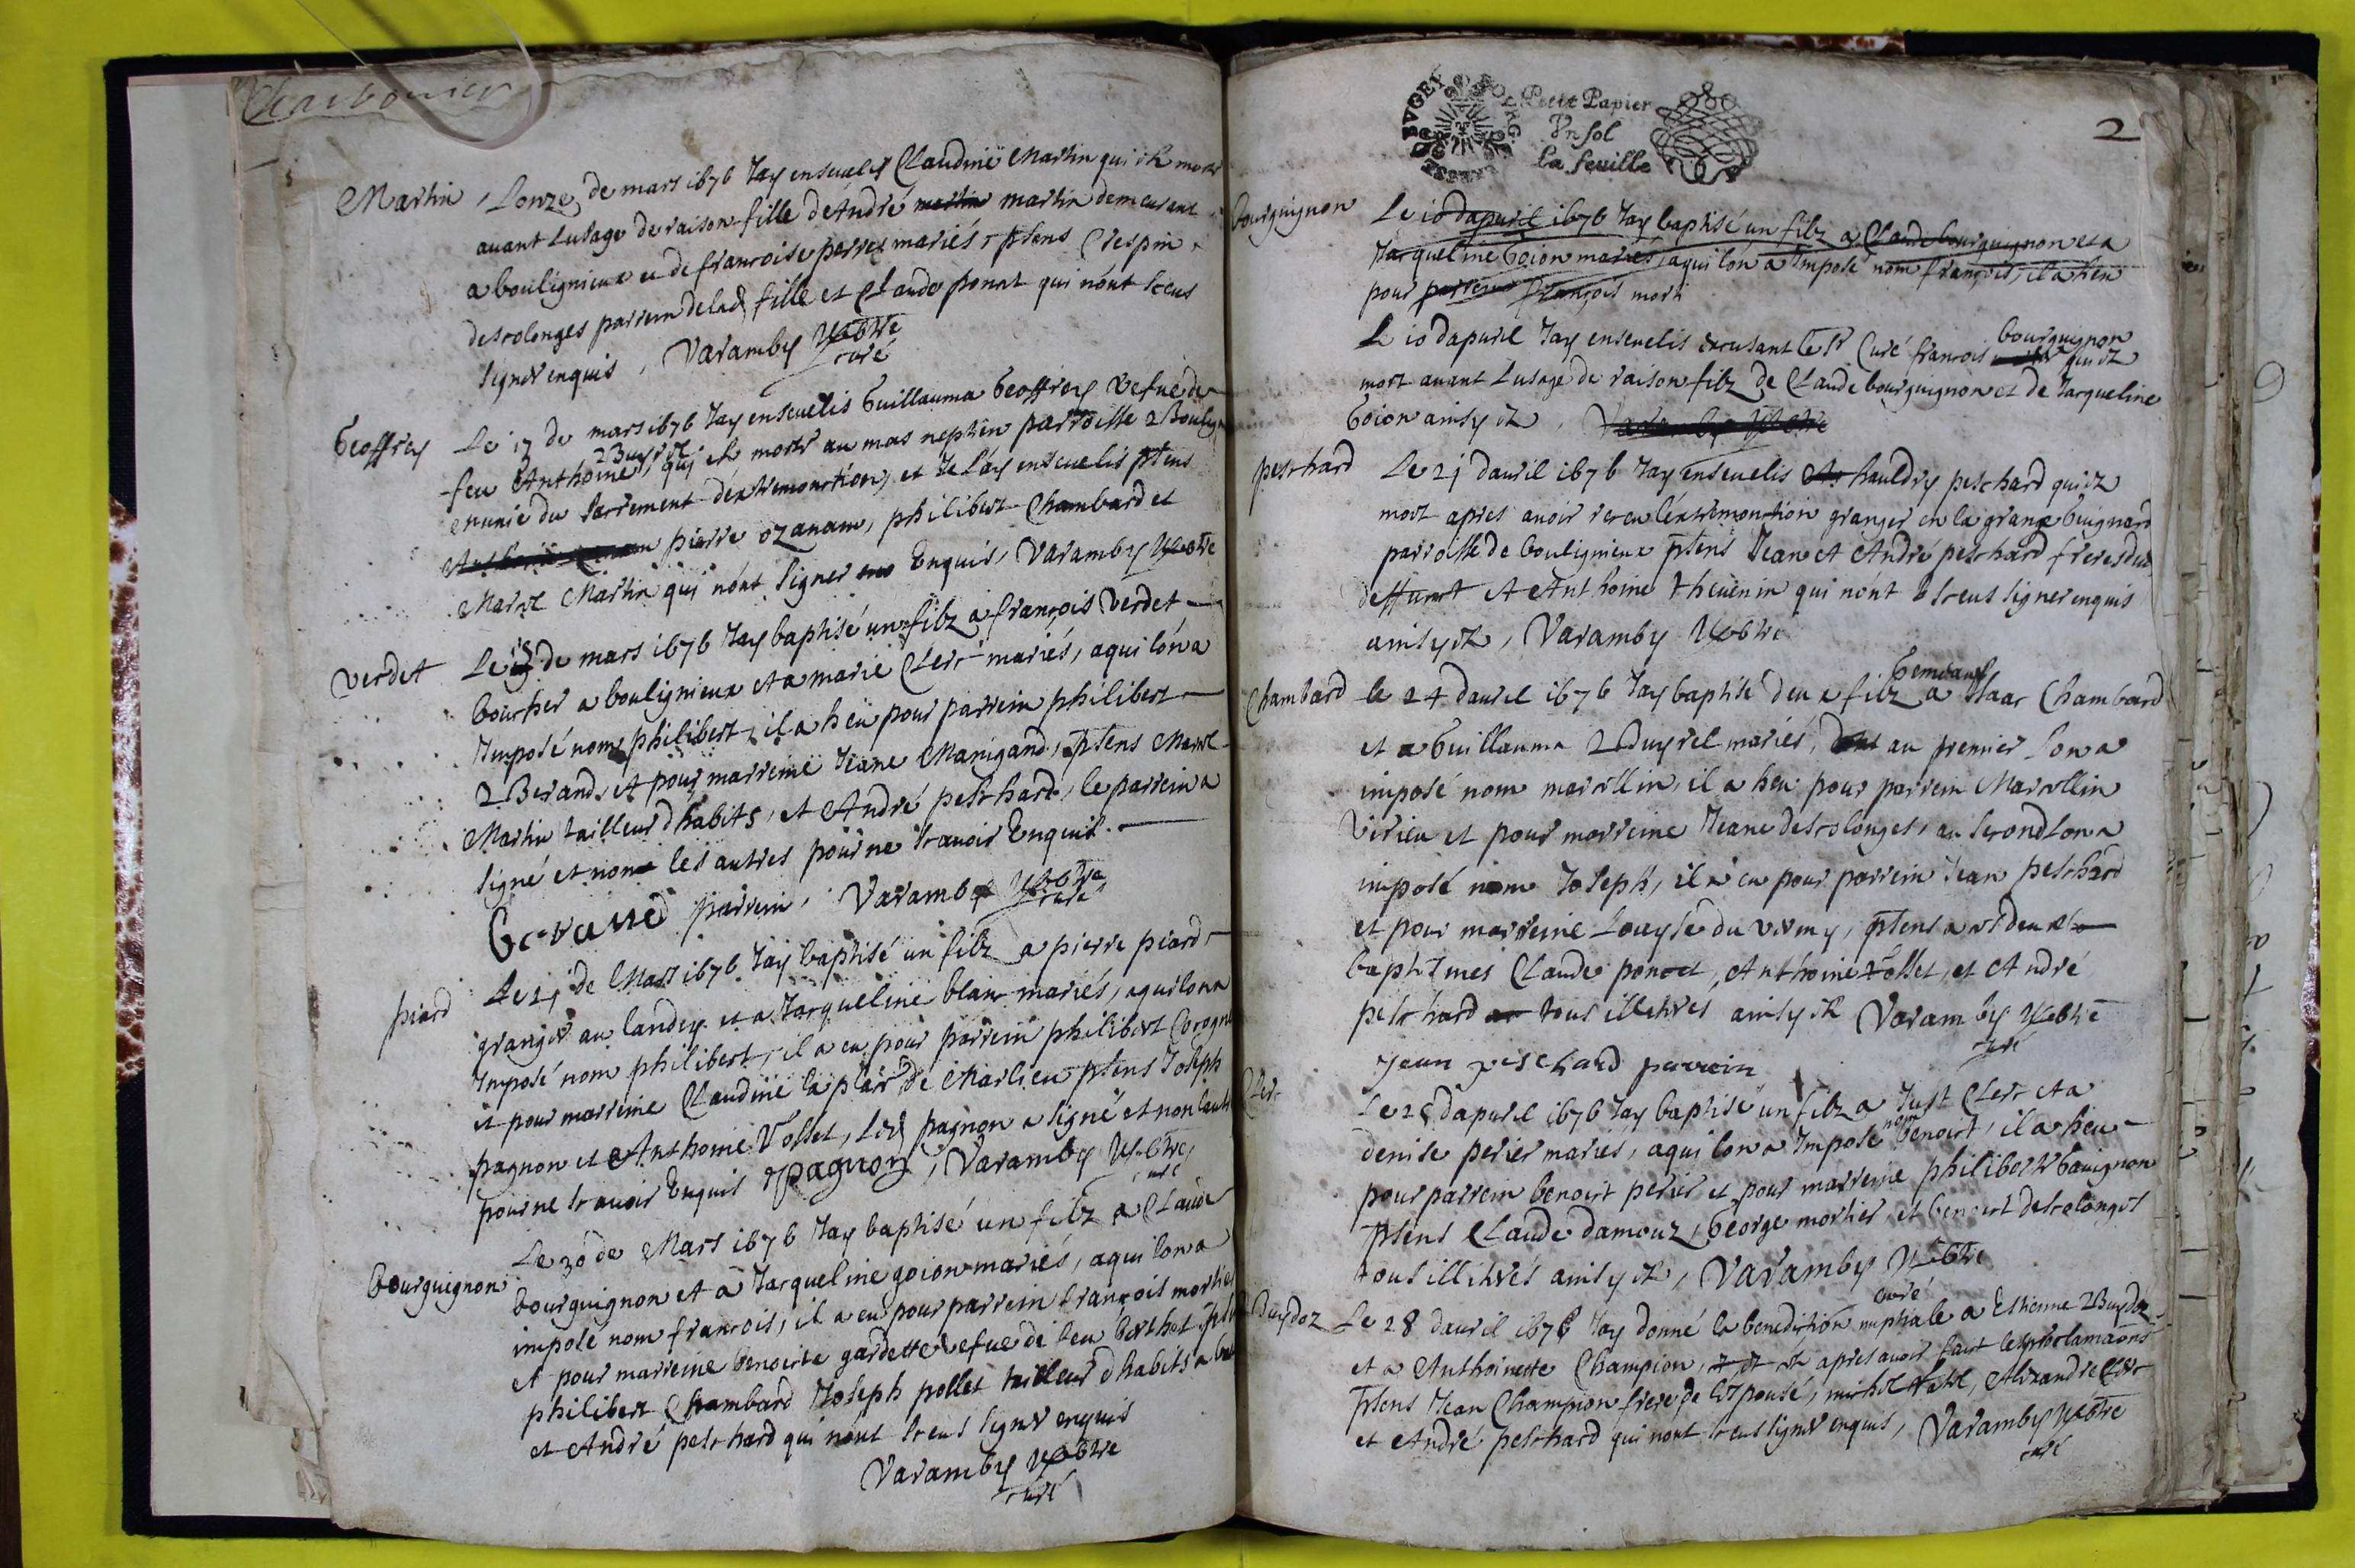 Charbonier
Martin Lonze de mars 1676 Jay enseuely Claudine Martin qui est morte
auant Lusage de raison fille dAndré martin demeurant
a bouligneux et de francoise perret mariés ptens Crespin
descolonges parrein de lad fille et Claude ponat qui nónt sceus
signer enquis, Varamby pbtre
curé
Geoffrey Le 17 de mars 1676 Jay enseuelis Guillauma Geoffrey vefue de
feu Anthoine Buyret, qui est morte au mas nephen parroisse 2 Boulig
munie du sacrement déxtremonction, et Je láy enseuelis ptens
pierre ozanam, philibert Chambard et
Marcel Martin qui nónt signer Enquis, Varamby pbtre
Verdet Le de mars 1676 Jay baptisé un filz a francois Verdet
boucher a bouligneux et a marie Clerc mariés, aqui lón a
Imposé nom philibert, il a heu pour parrein philibert
Berand, et pour marreine Jeane Manigand, ptens Marcel
Martin tailleur dhabits, et André peschard, le parrein a
signé et non les autres pour ne scauoir Enquis.
parrein, Varamby pbtre
curé
piard Le 21 de Mars 1676 Jay baptisé un filz a pierre piard
granger au landey et a Jacqueline blanc mariés, aqui lon a
Imposé nom philibert, il a eu pour parrein philibert Corogne
et pour marreine Claudine la plar de Marlieu ptens Joseph
pagnon et Anthoine Vosset, led pagnon a signé et non lautre
pour ne scauoir Enquis J pagnon, Varamby pbtre
curé
bourguignon Le 30 de Mars 1676 Jay baptisé un filz a Claude
bourguignon et a Jacqueline goion mariés, aqui lon a
imposé nom francois, il a eu pour parrein francois mortier
et pour marreine benoiste gardette vefue de feu berthet
philibert Chambard Joseph pollet tailleur dhabits a
et André peschard qui nónt sceus signer enquis
Varamby pbtre
curé
BVGEY
Petit Papier
Vn sol
la feuille
2
bourguignon Le 10 dapuril 1676 Jay baptisé un filz a Claude bourguignon et a
Jacqueline Goion mariés, aqui lón a Imposé nom françois, il a heu
pour parrein françois morti
Le 10 dapuril Jay enseuelis excusant le sr Curé francois bourguignon qui est
mort auant Lusage de raison filz de Claude bourguignon et de Jacqueline
Goion ainsy est, Varamby pbtre
peschard Le 21 dauril 1676 Jay enseuelis hauldry peschard qui est
mort apres auoir receu léxtremonction granger en la grange Guignard
parroisse de bouligneux ptens Jean et André peschard freres du
deffunct et Anthoine theuenin qui nónt sceus signer enquis
ainsy est, Varamby pbtre
Chambard le 24 dauril 1676 Jay baptisé deux filz gemeaux a Isaac Chambard
et a Guillauma Duyrel mariés, au premier lon a
imposé nom marcellin, il a heu pour parrein Marcellin
Virieu et pour marreine Jeane descolonges, au second lon a
imposé nom Joseph, il a eu pour parrein Jean peschard
et pour marreine Louyse du vermy, ptens a ces deux
baptesmes Claude poncet, Anthoine Vosset, et André
peschard tous illetres ainsy est Varamby pbtre
curé
Jean peschard parrein
Clerc Le 25 dapuril 1676 Jay baptisé un filz a Just Clerc et a
denise perier mariés, aqui lon a Imposé nom benoict, il a heu
pour parrein benoict perier et pour marreine philiberte Gauignon
ptens Claude damouz, George mortier et benoict descolonges
tous illitrés ainsy est, Varamby pbtre
curé
Buydoz Le 28 dauril 1676 Jay donné la benediction nuptiale a Estienne Buydoz
et a Anthoinette Champion, apres auoir faict les proclamaons
ptens Jean Champion frere de lespousé, michel, Alexandre Clerc
et André peschard qui nont sceus signer enquis, Varamby pbtre
curé